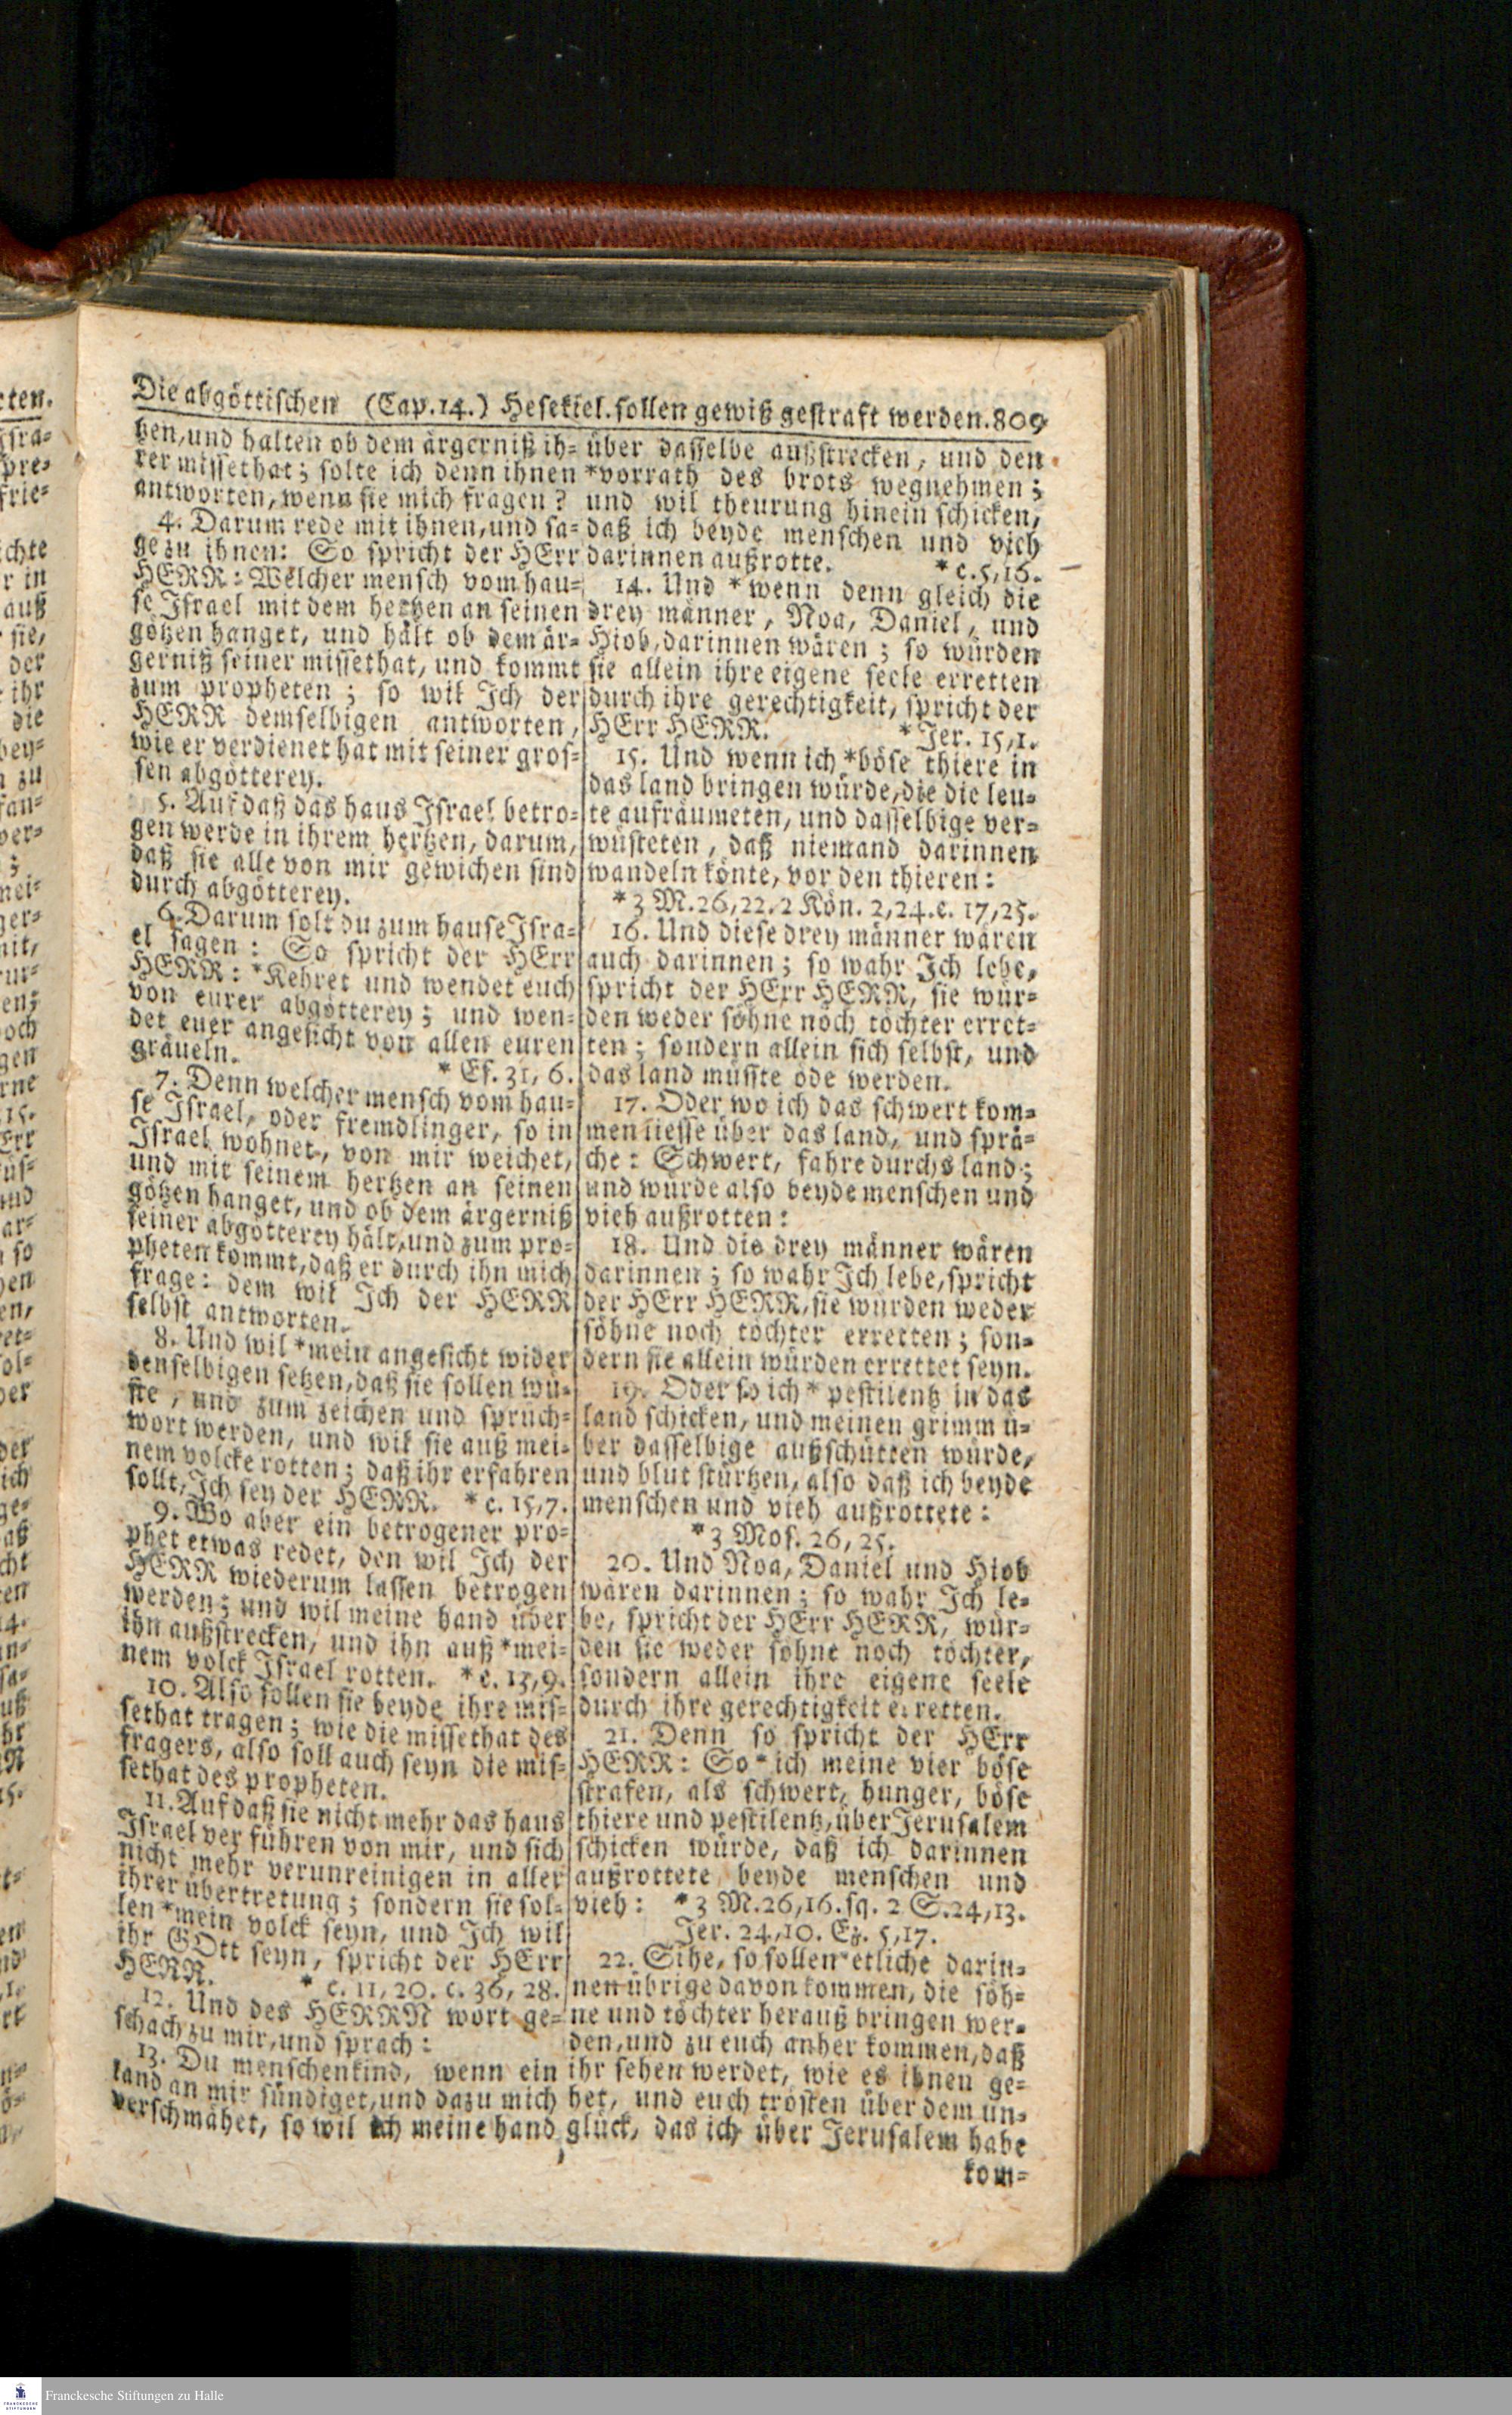 Die abgöttischen (Cap.14.) Hesekiel. sollen gewiß gestraft werden. 809
tzen, und halten ob dem ärgerniß ih-
rer missethat; solte ich denn ihnen
antworten, wenn sie mich fragen?
4. Darum rede mit ihnen, und sa-
ge zu ihnen: So spricht der HErr
HERR: Welcher mensch vom hau-
se Israel mit dem hertzen an seinen
götzen hanget, und hält ob dem är-
gerniß seiner missethat, und kommt
zum propheten; so wil Ich der
HERR demselbigen antworten,
wie er verdienet hat mit seiner gros-
sen abgötterey.
5. Auf daß das haus Israel betro-
gen werde in ihrem hertzen, darum,
daß sie alle von mir gewichen sind
durch abgötterey.
6. Darum solt du zum hause Isra-
el sagen: So spricht der HErr
HERR: *Kehret und wendet euch
von eurer abgötterey; und wen-
det euer angesicht von allen euren
gräueln. * Es. 31, 6.
7. Denn welcher mensch vom hau-
se Israel, oder fremdlinger, so in
Israel wohnet, von mir weichet,
und mit seinem hertzen an seinen
götzen hanget, und ob dem ärgerniß
seiner abgötterey hält, und zum pro-
pheten kommt, daß er durch ihn mich
frage: dem wil Ich der HERR
selbst antworten.
8. Und wil *mein angesicht wider
denselbigen setzen, daß sie sollen wü-
ste, und zum zeichen und sprüch-
wort werden, und wil sie auß mei-
nem volcke rotten; daß ihr erfahren
sollt, Ich sey der HERR. * c. 15,7.
9. Wo aber ein betrogener pro-
phet etwas redet, den wil Ich der
HERR wiederum lassen betrogen
werden; und wil meine hand über
ihn außstrecken, und ihn auß *mei-
nem volck Israel rotten. * c. 13,9.
10. Also sollen sie beyde ihre mis-
sethat tragen; wie die missethat des
fragers, also soll auch seyn die mis-
sethat des propheten.
11. Auf daß sie nicht mehr das haus
Israel verführen von mir, und sich
nicht mehr verunreinigen in aller
ihrer übertretung; sondern sie sol-
len *mein volck seyn, und Ich wil
ihr GOtt seyn, spricht der HErr
HERR. * c. 11, 20. c. 36, 28.
12. Und des HERRN wort ge-
schach zu mir, und sprach:
13. Du menschenkind, wenn ein
land an mir sündiget, und dazu mich
verschmähet, so wil ich meine hand
über dasselbe außstrecken, und den
*vorrath des brots wegnehmen;
und wil theurung hinein schicken,
daß ich beyde menschen und vieh
darinnen außrotte. * c. 5,16.
14. Und * wenn denn gleich die
drey männer, Noa, Daniel, und
Hiob, darinnen wären; so würden
sie allein ihre eigene seele erretten
durch ihre gerechtigkeit, spricht der
HErr HERR. * Jer. 15,1.
15. Und wenn ich *böse thiere in
das land bringen würde, die die leu-
te aufräumeten, und dasselbige ver-
wüsteten, daß niemand darinnen
wandeln könte, vor den thieren:
* 3 M. 26,22. 2 Kön. 2,24. c. 17,25.
16. Und diese drey männer wären
auch darinnen; so wahr Ich lebe,
spricht der HErr HERR, sie wür-
den weder söhne noch töchter erret-
ten; sondern allein sich selbst, und
das land müsste öde werden.
17. Oder wo ich das schwert kom-
men liesse über das land, und sprä-
che: Schwert, fahre durchs land;
und würde also beyde menschen und
vieh außrotten:
18. Und die drey männer wären
darinnen; so wahr Ich lebe, spricht
der HErr HERR, sie würden weder
söhne noch töchter erretten; son-
dern sie allein würden errettet seyn.
19. Oder so ich * pestilentz in das
land schicken, und meinen grimm ü-
ber dasselbige außschütten würde,
und blut stürtzen, also daß ich beyde
menschen und vieh außrottete:
* 3 Mos. 26, 25.
20. Und Noa, Daniel und Hiob
wären darinnen; so wahr Ich le-
be, spricht der HErr HERR, wür-
den sie weder söhne noch töchter,
sondern allein ihre eigene seele
durch ihre gerechtigkeit erretten.
21. Denn so spricht der HErr
HERR: So * ich meine vier böse
strafen, als schwert, hunger, böse
thiere und pestilentz, über Jerusalem
schicken würde, daß ich darinnen
außrottete beyde menschen und
vieh: * 3 M. 26,16. sq. 2 S. 24,13.
Jer. 24,10. Ez. 5,17.
22. Sihe, so sollen *etliche darin-
nen übrige davon kommen, die söh-
ne und töchter herauß bringen wer-
den, und zu euch anher kommen, daß
ihr sehen werdet, wie es ihnen ge-
het, und euch trösten über dem un-
glück, das ich über Jerusalem habe
kom-
Franckesche Stiftungen zu Halle